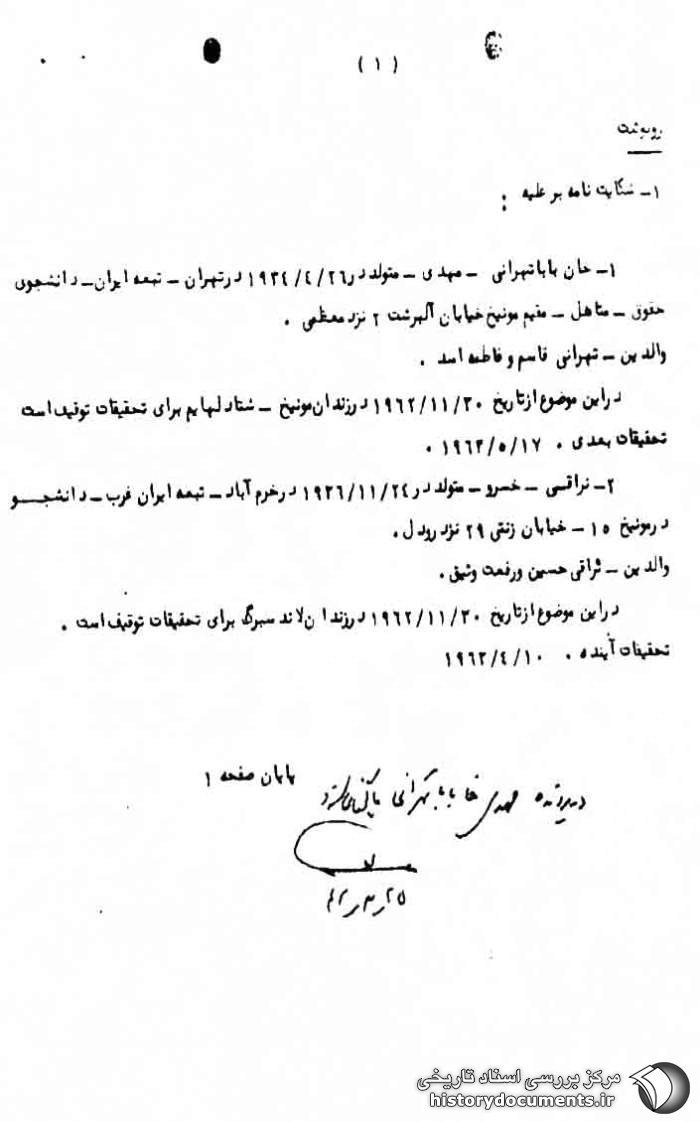 ( ۱ )
رونوشت
۱- شکایت نامه بر علیه :
۱- خان باباتهرانی - مهدی - متولد در ۱۹۳٤/٤/۲٦ در تهران - تبعه ایران - دانشجوی
حقوق - متاهل - مقیم مونیخ خیابان آلبرشت ۲ نزد معظمی .
والدین - تهرانی قاسم و فاطمه اسد .
در این موضوع از تاریخ ۱۹٦۲/۱۱/۳۰ در زندان مونیخ - شتادلهایم برای تحقیقات توقیف است
تحقیقات بعدی . ۱۹٦۳/٥/۱۷ .
۲- نراقی - خسرو - متولد در ۱۹۳٦/۱۱/۲٤ در خرم آباد - تبعه ایران غرب - دانشجو
در مونیخ ۱٥ - خیابان زنتی ۲۹ نزد رودل .
والدین - ثراقی حسین و رفعت وثیق .
در این موضوع از تاریخ ۱۹٦۲/۱۱/۳۰ در زندان لاندسبرگ برای تحقیقات توقیف است .
تحقیقات آینده . ۱۹٦۳/٤/۱۰
پایان صفحه ۱
در پرونده مهدی خانبابا تهرانی بایگانی شود
٤۲٫۳٫۲٥
مرکز بررسی اسناد تاریخی
historydocuments.ir